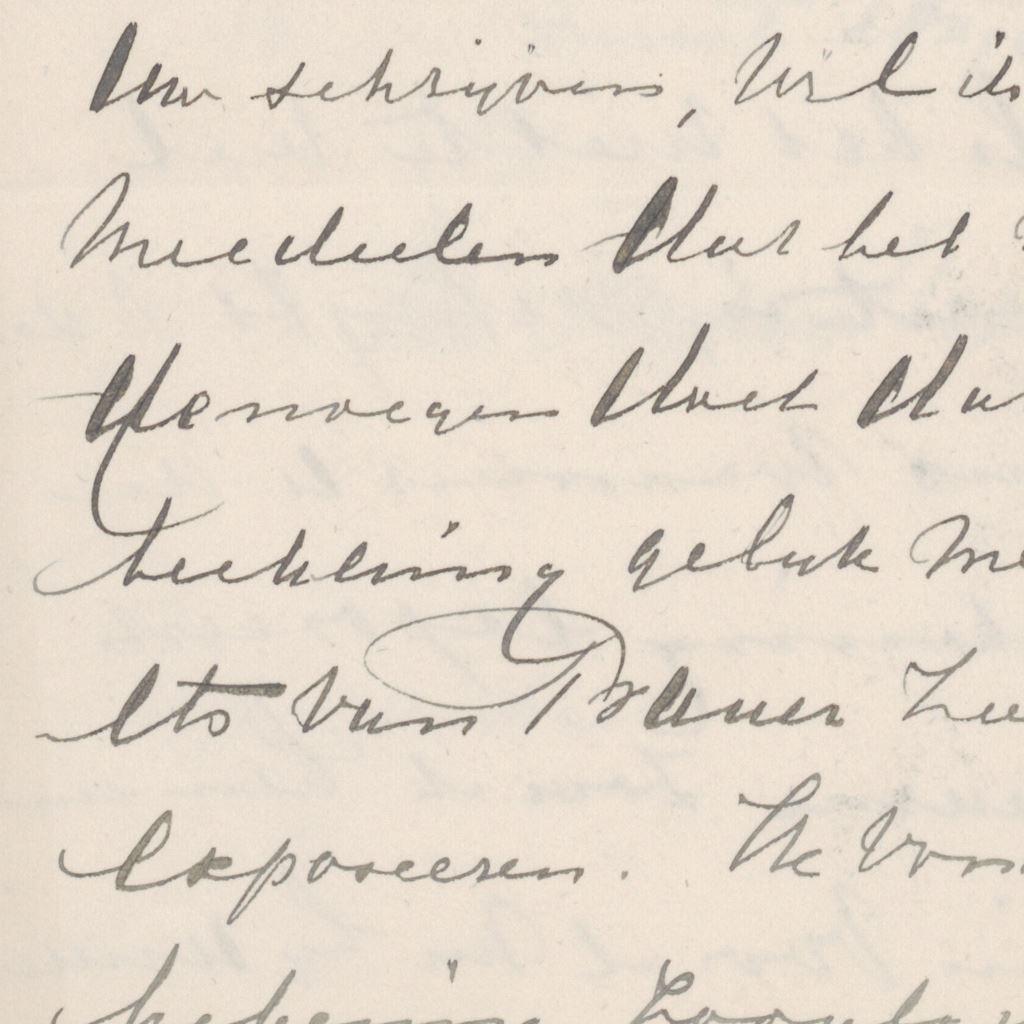 Uw schrijven, wil ik
meedeelen dat het
genoegen doet dat
teekening gelyk me
ets van Bauer zu
exposeeren. Ik von